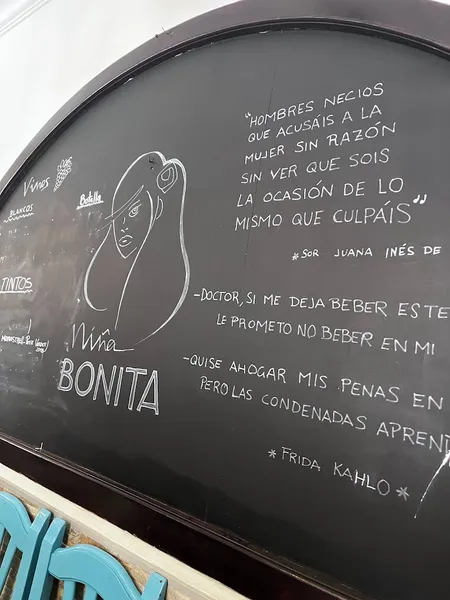 Vinos
BLANCOS
Botella
TINTOS
Niña
BONITA
"HOMBRES NECIOS
QUE ACUSÁIS A LA
MUJER SIN RAZÓN
SIN VER QUE SOIS
LA OCASIÓN DE LO
MISMO QUE CULPÁIS"
*SOR JUANA INÉS DE
-DOCTOR, SI ME DEJA BEBER ESTE
LE PROMETO NO BEBER EN MI
-QUISE AHOGAR MIS PENAS EN
PERO LAS CONDENADAS APREND
* FRIDA KAHLO *